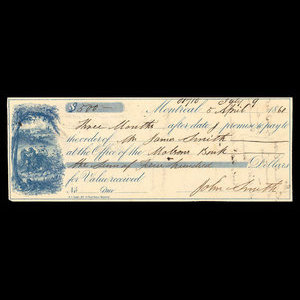 $500
Montreal 5 April 1861
Three Months after date I promise to pay to
the order of Mr James Smith
at the Office of the Molsons Bank
the sum of Five Hundred Dollars
for Value received
No Due John Smith